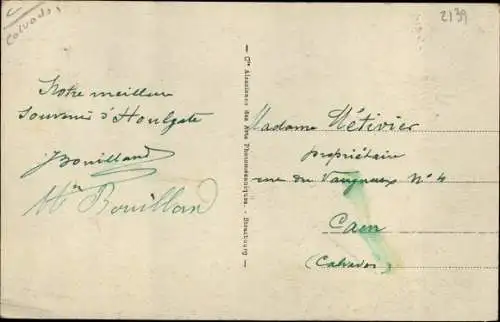 Calvados
2139
Notre meilleur
souvenir d'Houlgate
JBouilland
Mn Bouilland
Cie Alsacienne des Arts Photomécaniques. - Strasbourg
Madame Métivier
propriétaire
rue du Vaugueux N° 4
Caen
(Calvados)